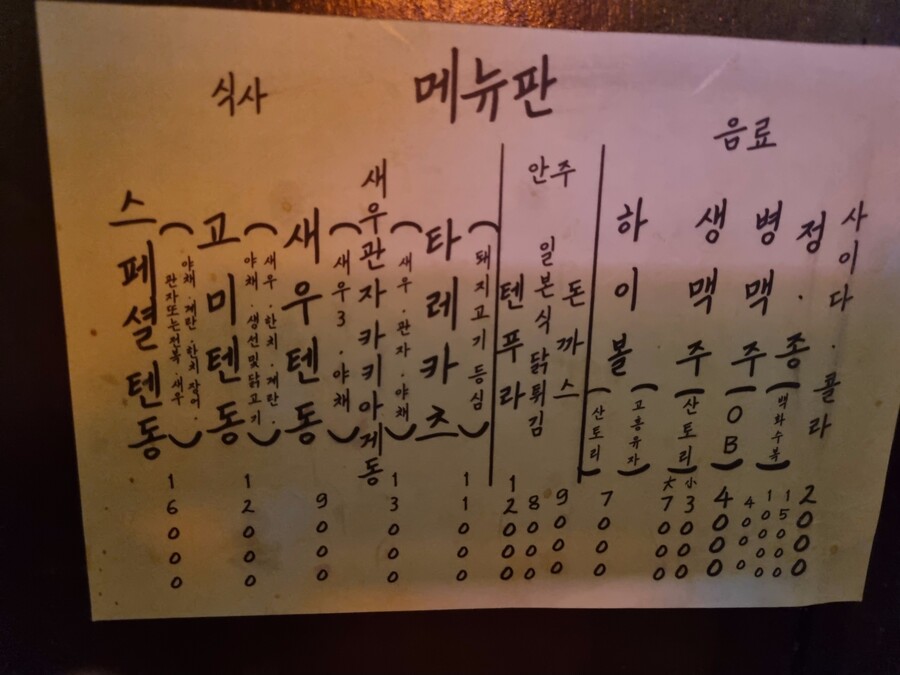 메뉴판
식사
스페셜텐동
(야채.계란.한치장어.
관자또는전복.새우)
16000
고미텐동
(새우.한치.계란.
야채.생선및닭고기)
12000
새우텐동
(새우3.야채)
9000
새우관자카키아게동
(새우.관자.야채)
13000
타레카츠
(돼지고기등심)
11000
안주
텐푸라
12000
일본식닭튀김
8000
돈까스
9000
음료
하이볼
(산토리
고흥유자)
7000
생맥주
(산토리)
大 7000
小 3000
병맥주
(OB)
4000
정.종
(백화수복)
4000
10000
15000
사이다.콜라
2000